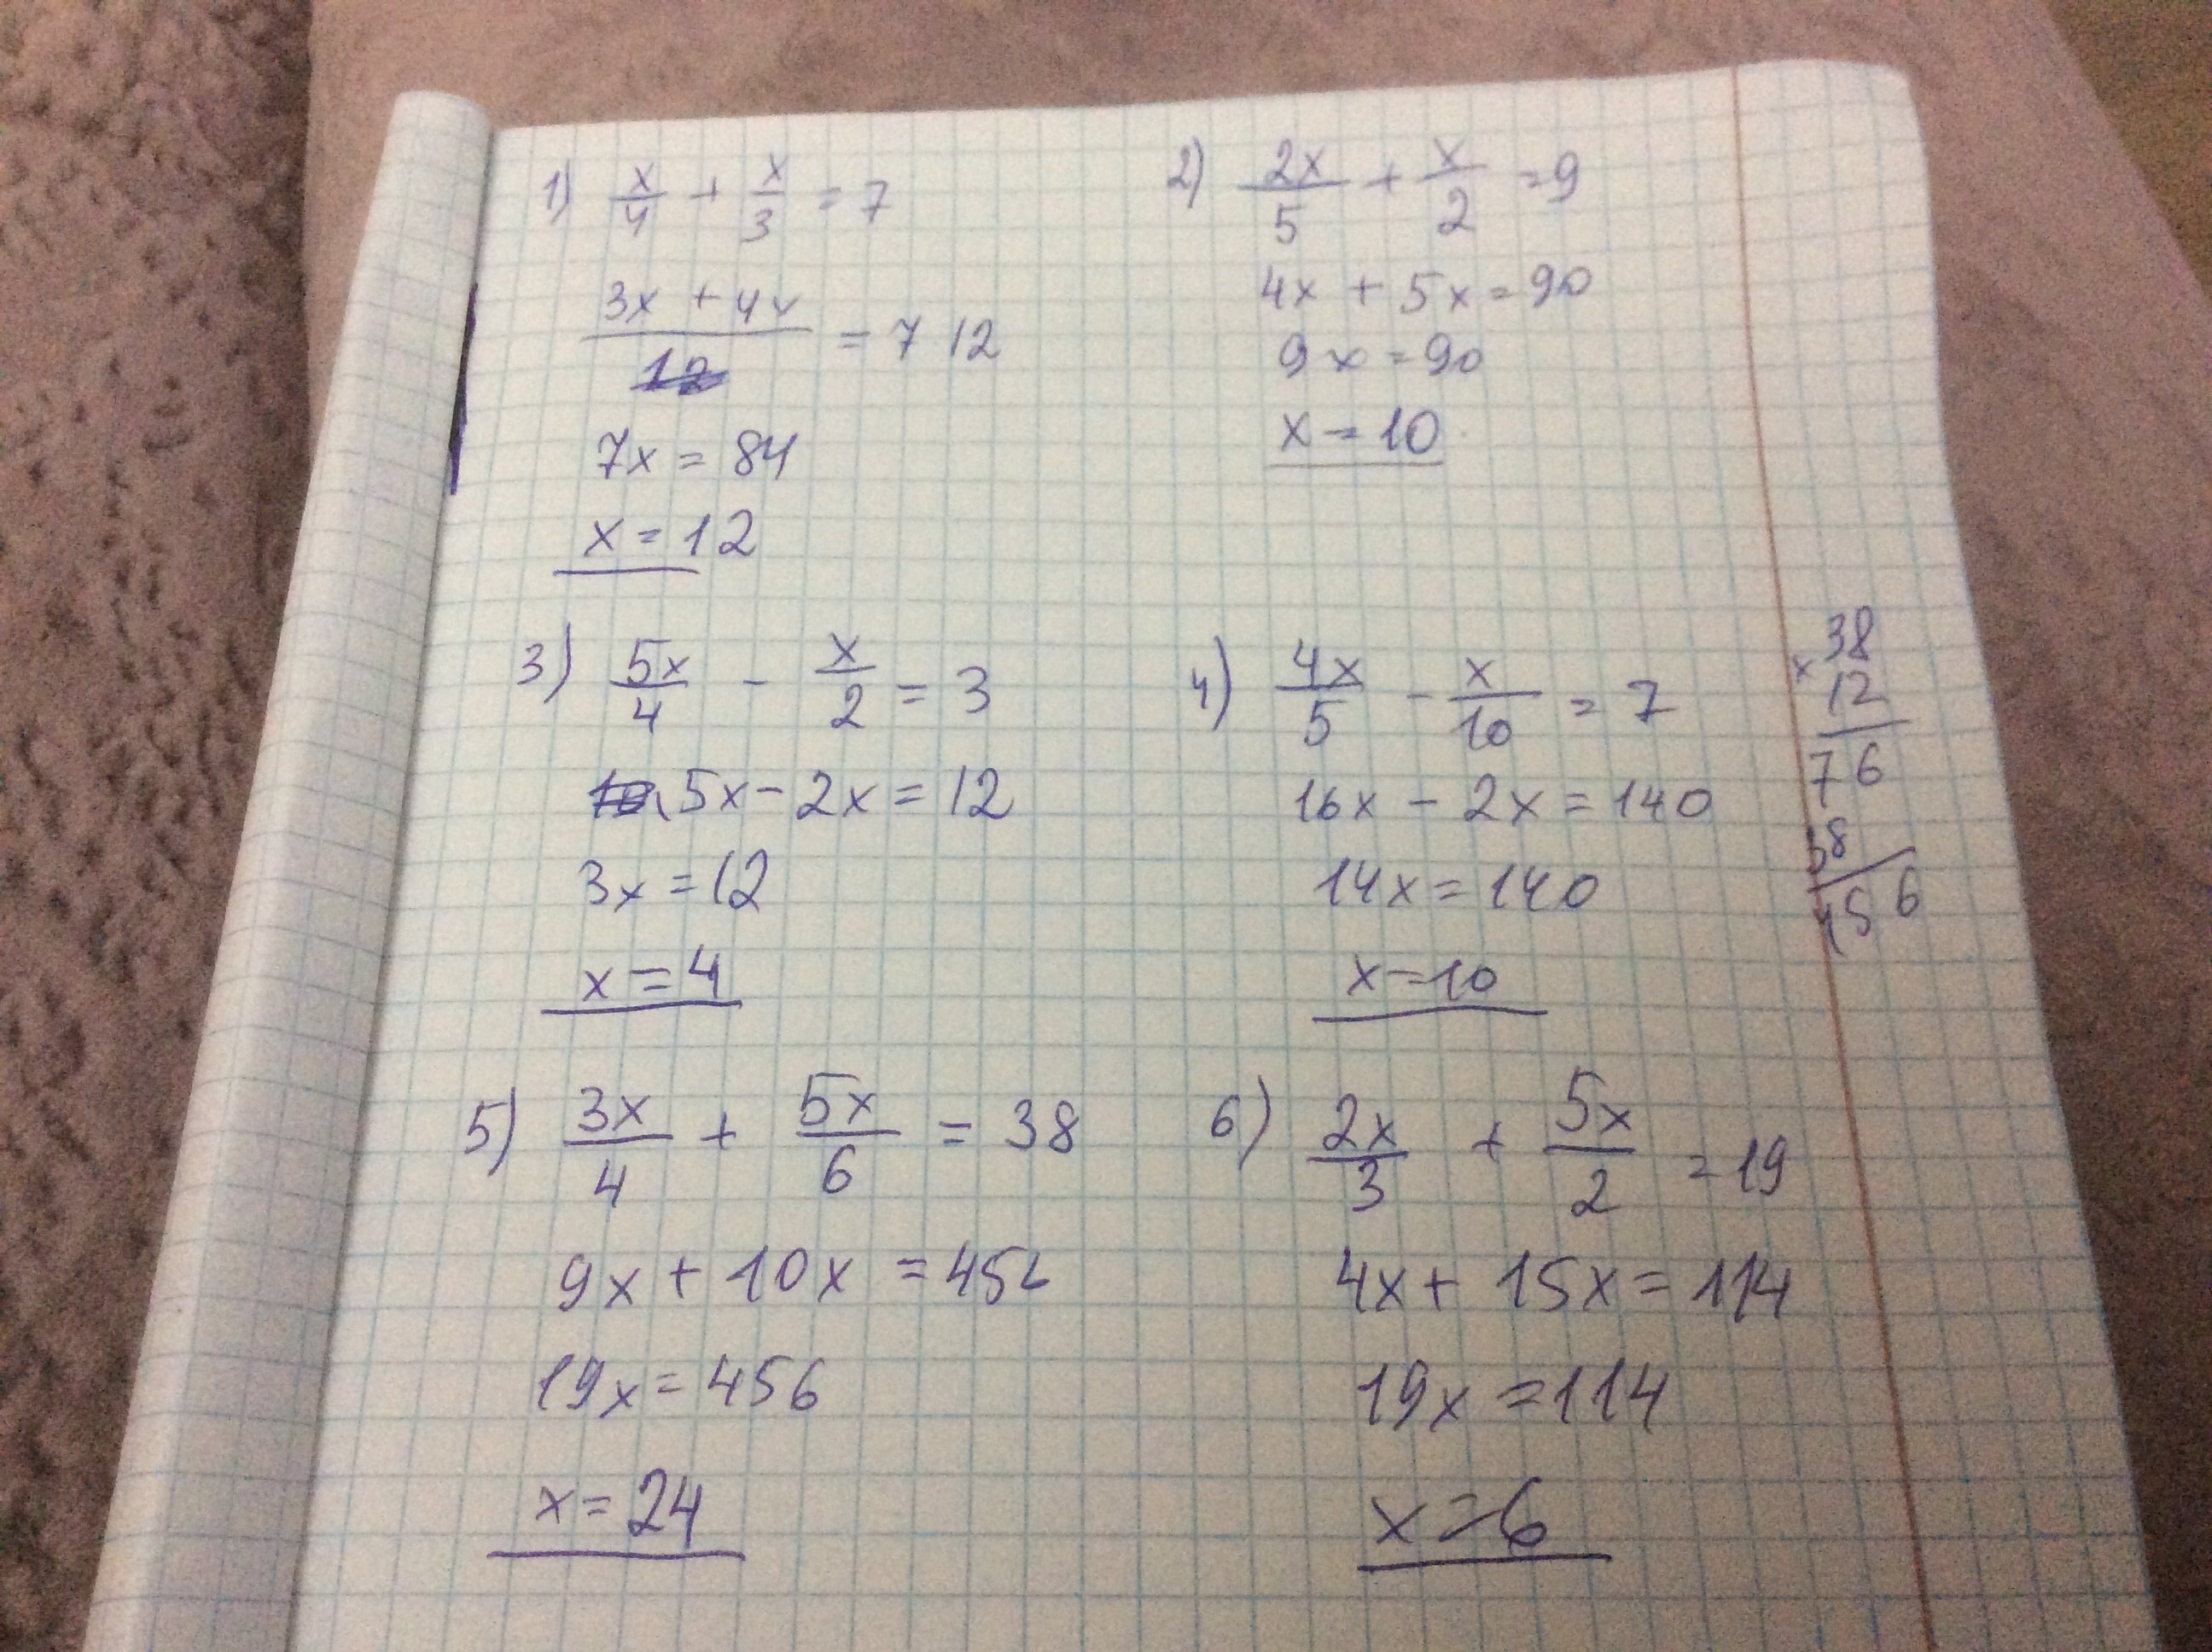 1) x/4 + x/3 = 7
3x + 4x / 12 = 7 12
7x = 84
x = 12
2) 2x/5 + x/2 = 9
4x + 5x = 90
9x = 90
x = 10
3) 5x/4 - x/2 = 3
5x - 2x = 12
3x = 12
x = 4
4) 4x/5 - x/10 = 7
16x - 2x = 140
14x = 140
x = 10
38
x 12
76
38
456
5) 3x/4 + 5x/6 = 38
9x + 10x = 456
19x = 456
x = 24
6) 2x/3 + 5x/2 = 19
4x + 15x = 114
19x = 114
x = 6